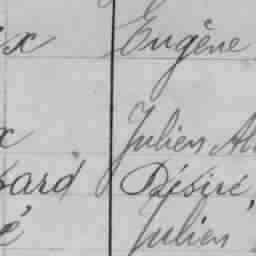 x Eugène
x Julien
sard Désiré,
é Julien